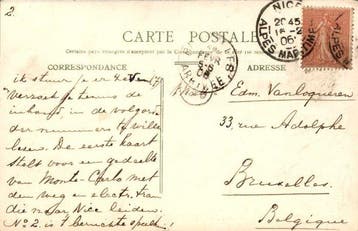 2.
CARTE POSTALE
Tous les pays étrangers n'acceptent pas
CORRESPONDANCE
ADRESSE
NICE
20 45
16-2
06
ALPES MARITIMES
ik stuur je er 7
Verzoek je tevens de
inhoud, in de volgorde
der nummers te willen
lezen. De eerste kaart
stelt voor een gedeelte
van Monte-Carlo met
den weg en electr. tram
die naar Nice leiden.
No 2. is 't beruchte speelh.!
Edm. Vanloqueren
33, rue Adolphe
Bruxelles.
Belgique